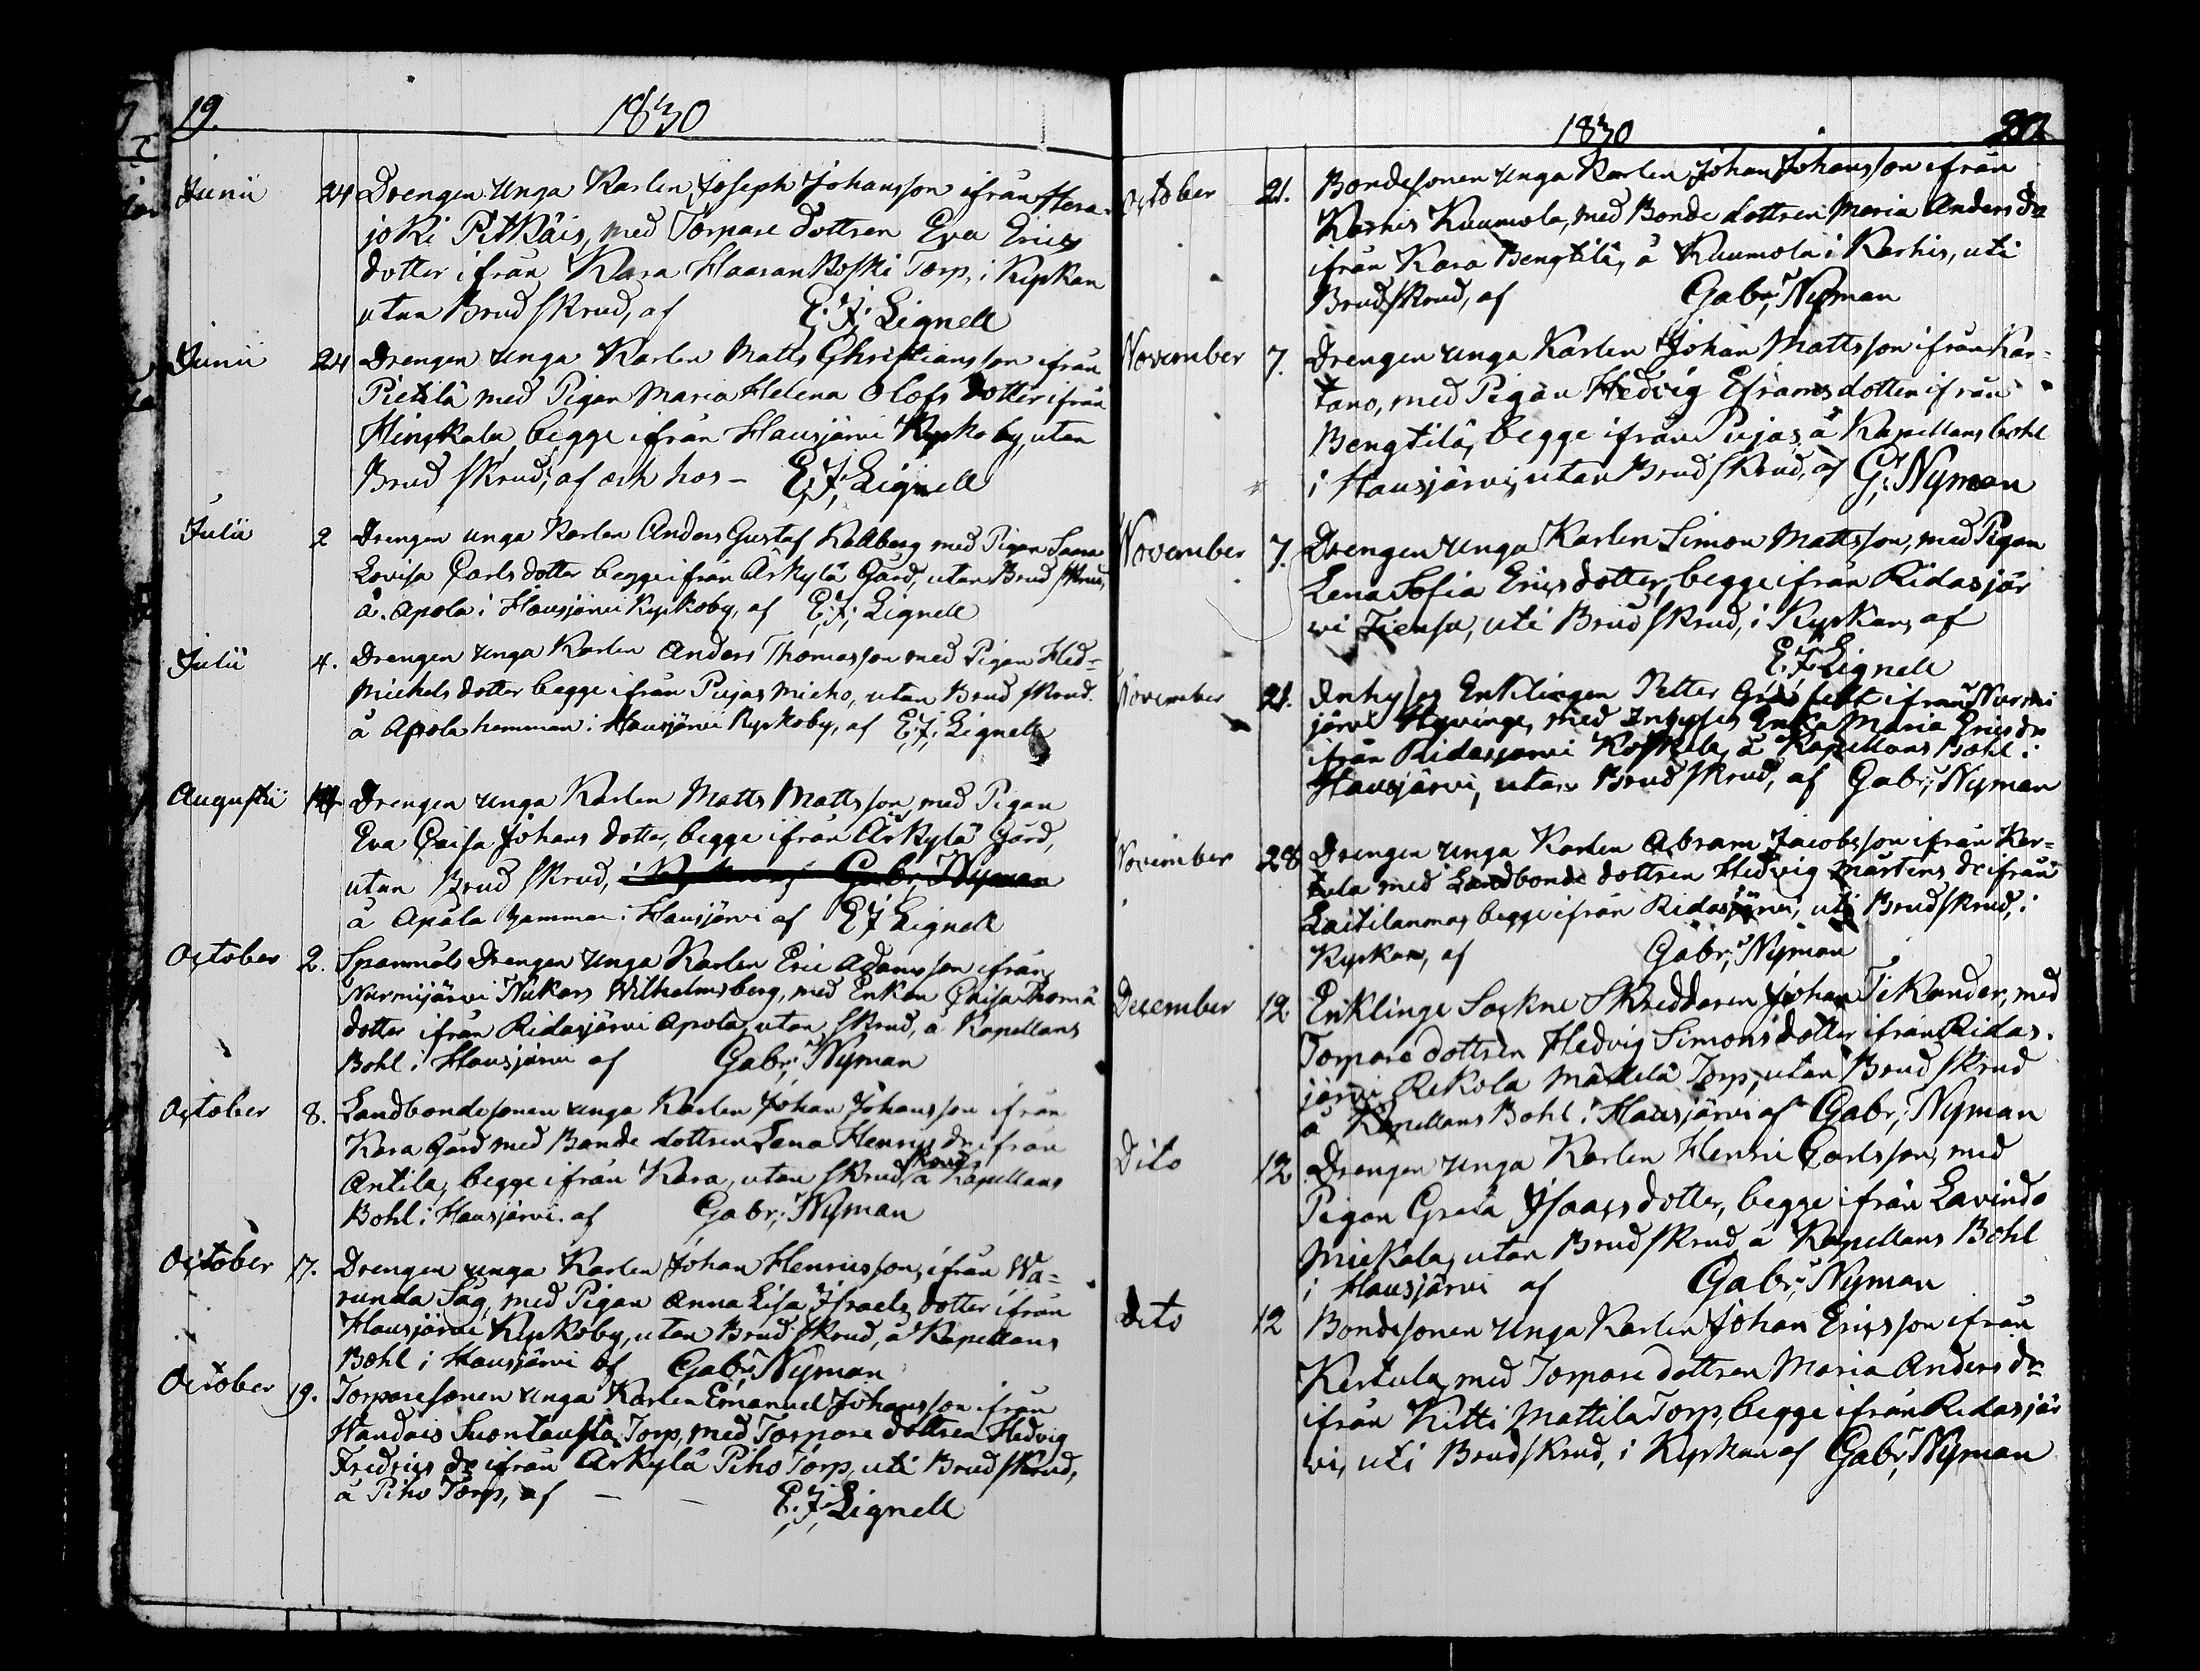 19.
1830
Junii 24 Drengen unga Karlen Joseph Johansson ifrån Hera-
joki Pitkäis, med Torpare dottren Eva Erics
dotter ifrån Kara Haarankoski Torp, i Kyrkan
utan Brud skrud, af E. J. Lignell
Junii 24 Drengen unga Karlen Matts Christiansson ifrån
Pietilä med Pigan Maria Helena Olofs dotter ifrån
begge ifrån Hausjärvi Kyrkoby, utan
Brud skrud, af och hos – E. J. Lignell
Julii 2 Drengen unga Karlen Anders Gustaf Kallberg med Pigan Saara
Lovisa Carls dotter begge ifrån Ärkylä Gård, utan Brud skrud,
å Apola i Hausjärvi Kyrkoby, af E. J. Lignell
Julii 4. Drengen unga Karlen Anders Thomasson med Pigan Hed=
Michels dotter begge ifrån Pujas Micko, utan Brud skrud.
å Apola hemman i Hausjärvi Kyrkoby, af E. J. Lignell
Augustii Drengen unga Karlen Matts Mattsson, med Pigan
Eva Caisa Johans dotter, begge ifrån Ärkylä Gård,
utan Brud skrud, i Kyrkan af Gabr; Nyman
å Apåla hemman i Hausjärvi af E J Lignell
October 2. Spanmåls Drengen unga Karlen Eric Adamsson ifrån
Nurmijärvi Nukars Wilhelmsberg, med Enkan Caisa Thomæ
dotter ifrån Ridasjärvi Apola, utan skrud, å Kapellans
Bohl i Hausjärvi af Gabr; Nyman
October 8. Landbondesonen unga Karlen Johan Johansson ifrån
Kara Gård med Bonde dottren Lena Henrics dr ifrån
Antila, begge ifrån Kara, utan skrud å Kapellans
Bohl i Hausjärvi. af Gabr; Nyman
October 17. Drengen unga Karlen Johan Henricsson, ifrån Wa=
runda Såg, med Pigan Anna Lisa Israels dotter ifrån
Hausjärvi Kyrkoby, utan Brud skrud, å Kapellans
Bohl i Hausjärvi af Gabr; Nyman
October 19. Torparesonen unga Karlen Emanuel Johansson ifrån
Handois Suontausta Torp, med Torpare dottren Hedvig
Fredrics dr ifrån Ärkylä Piho Torp, uti Brud skrud,
å Piho Torp, af – – E. J. Lignell
1830
20
October 21. Bondesonen unga Karlen Johan Johansson ifrån
Karhis Kuumola, med Bonde dottren Maria Anders dr
ifrån Kara Bengtilä, å Kuumola i Karhis, uti
Brudskrud, af Gabr; Nyman
November 7. Drengen unga Karlen Johan Mattsson ifrån Kar=
tano, med Pigan Hedvig Eframs dotter ifrån
Bengtilä, begge ifrån Pujas, å Kapellans bohl
i Hausjärvi, utan Brud skrud, af G; Nyman
November 7. Drengen unga Karlen Simon Mattsson, med Pigan
Lena Sofia Erics dotter, begge ifrån Ridasjär
vi Tiensu, uti Brud skrud, i Kyrkan, af
E. J. Lignell
November 21. Inhyses Enklingen Petter ifrån Nurmi
järvi Hyvinge, med Inhyses Enka Maria Erics dr
ifrån Ridasjärvi Koskela, å Kapellans Bohl i
Hausjärvi, utan Brud skrud, af Gabr; Nyman
November 28 Drengen unga Karlen Abram Jacobsson ifrån Ker=
tula med Landbonde dottren Hedvig Mårtens dr ifrån
Laitilanmas begge ifrån Ridasjärvi, uti Brud skrud, i
Kyrkan, af Gabr; Nyman
December 12 Enklinge Sockne Skreddaren Johan Tikander, med
Torpare dottren Hedvig Simons dotter ifrån Ridas-
järvi Rekola Mäkelä Torp, utan Brud skrud
å Kapellans Bohl i Hausjärvi af Gabr; Nyman
Dito 12 Drengen unga Karlen Henric Carlsson, med
Pigan Greta Isaacs dotter, begge ifrån Lavindo
Mickola, utan Brud skrud å Kapellans Bohl
i Hausjärvi af Gabr; Nyman
Dito 12 Bondesonen unga Karlen Johan Ericsson ifrån
Kertula, med Torpare dottren Maria Anders dr
ifrån Kitti Mattila Torp, begge ifrån Ridasjär
vi, uti Brud skrud, i Kyrkan af Gabr; Nyman